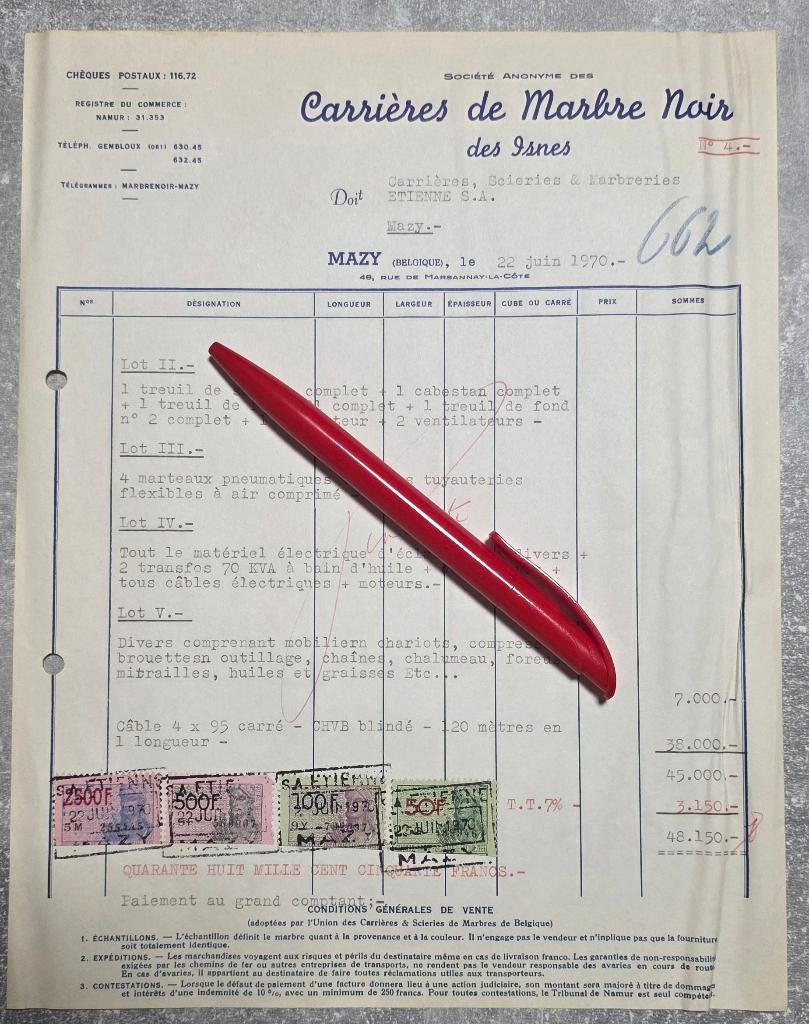 CHÈQUES POSTAUX : 116,72
REGISTRE DU COMMERCE :
NAMUR : 31.353
TÉLÉPH. GEMBLOUX (081) 630.45
632.45
TÉLÉGRAMMES : MARBRENOIR-MAZY
SOCIÉTÉ ANONYME DES
Carrières de Marbre Noir
des Isnes
N° 4.-
Doit
Carrières, Scieries & Marbreries
ETIENNE S.A.
Mazy.-
662
MAZY (BELGIQUE), le 22 juin 1970.-
48, RUE DE MARSANNAY-LA-CÔTE
Nos DÉSIGNATION LONGUEUR LARGEUR ÉPAISSEUR CUBE OU CARRÉ PRIX SOMMES
Lot II.-
1 treuil de complet + 1 cabestan complet
+ 1 treuil de complet + 1 treuil de fond
n° 2 complet + 1 + 2 ventilateurs -
Lot III.-
4 marteaux pneumatiques tuyauteries
flexibles à air comprimé -
Lot IV.-
Tout le matériel électrique divers +
2 transfos 70 KVA à bain d'huile + +
tous câbles électriques + moteurs.-
Lot V.-
Divers comprenant mobiliern chariots,
brouettesn outillage, chaînes, chalumeau,
mitrailles, huiles et graisses Etc...
7.000.-
Câble 4 x 95 carré - CHVB blindé - 120 mètres en
1 longueur -
38.000.-
45.000.-
2500F 500F 100F 50F
S.A. ETIENNE
22 JUIN 1970
MAZY
T.T.7% - 3.150.-
48.150.-
QUARANTE HUIT MILLE CENT CINQUANTE FRANCS.-
Paiement au grand comptant;-
CONDITIONS GÉNÉRALES DE VENTE
(adoptées par l'Union des Carrières & Scieries de Marbres de Belgique)
1. ÉCHANTILLONS. — L'échantillon définit le marbre quant à la provenance et à la couleur. Il n'engage pas le vendeur et n'implique pas que la fourniture
soit totalement identique.
2. EXPÉDITIONS. — Les marchandises voyagent aux risques et périls du destinataire même en cas de livraison franco. Les garanties de non-responsabili
exigées par les chemins de fer ou autres entreprises de transports, ne rendent pas le vendeur responsable des avaries en cours de rout
En cas d'avaries, il appartient au destinataire de faire toutes réclamations utiles aux transporteurs.
3. CONTESTATIONS. — Lorsque le défaut de paiement d'une facture donnera lieu à une action judiciaire, son montant sera majoré à titre de dommag
et intérêts d'une indemnité de 10 %, avec un minimum de 250 francs. Pour toutes contestations, le Tribunal de Namur est seul compéte